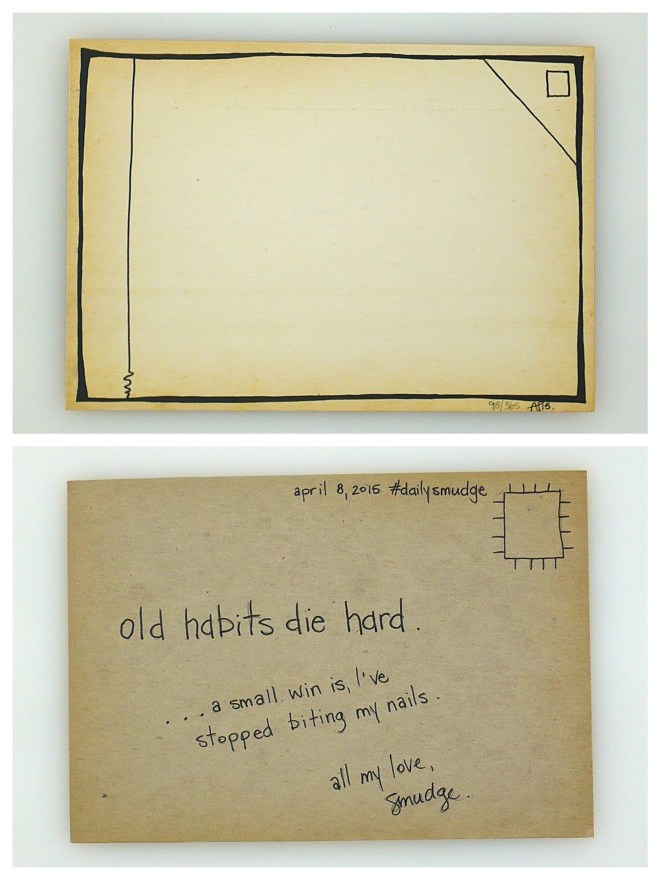 98/365 AP15.
april 8, 2015 #dailysmudge
old habits die hard.
....a small win is, I've
stopped biting my nails.
all my love,
smudge.